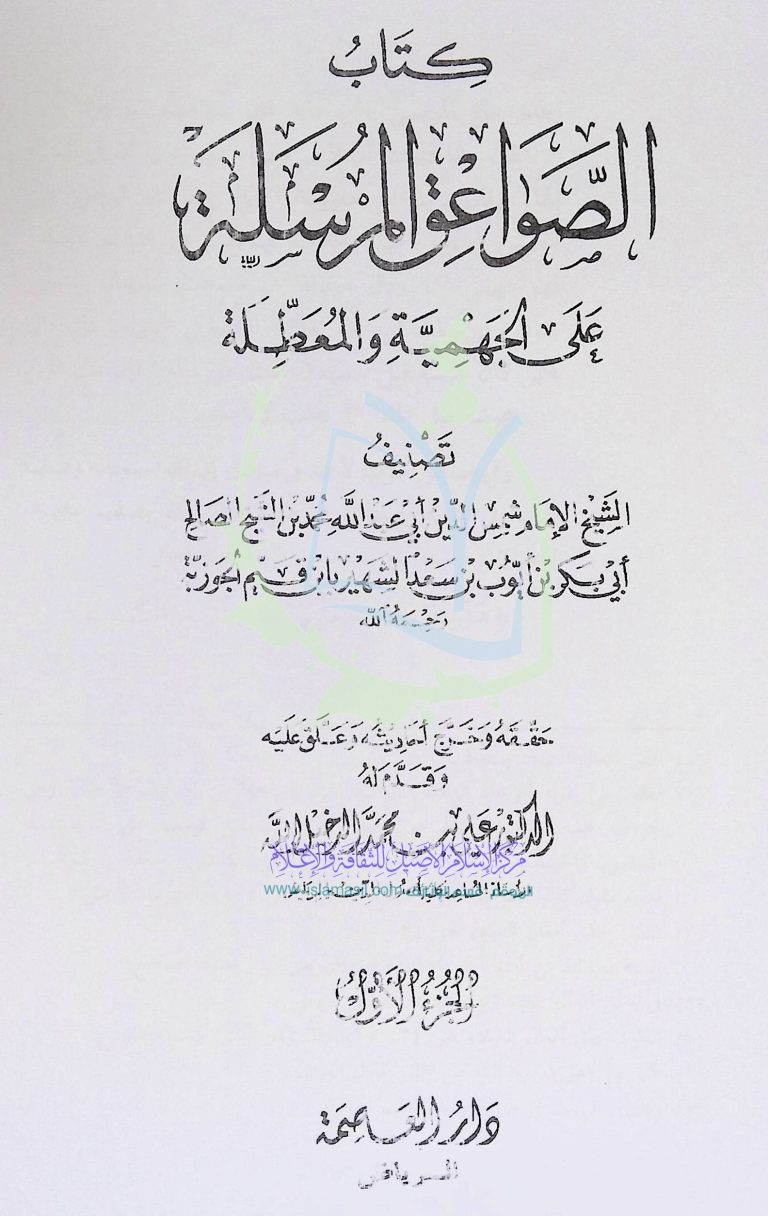 كِتَابُ
الصَّوَاعِقِ المُرْسَلَة
عَلَى الجَهْمِيَّةِ وَالمُعَطِّلَة
تَصْنِيفُ
الشَّيْخِ الإِمَامِ شَمْسِ الدِّينِ أَبِي عَبْدِ اللَّهِ مُحَمَّدِ بْنِ الشَّيْخِ الصَّالِحِ
أَبِي بَكْرِ بْنِ أَيُّوبَ بْنِ سَعْدٍ الشَّهِيرِ بِابْنِ قَيِّمِ الجَوْزِيَّة
رَحِمَهُ اللَّه
حَقَّقَهُ وَخَرَّجَ أَحَادِيثَهُ وَعَلَّقَ عَلَيْه
وَقَدَّمَ لَهُ
الدكتور علي بن محمد الدخيل الله
مركز الإسلام الأصيل للثقافة والإعلام
www.islamasil.com
الجُزْءُ الأَوَّلُ
دَارُ العَاصِمَة
الرياض